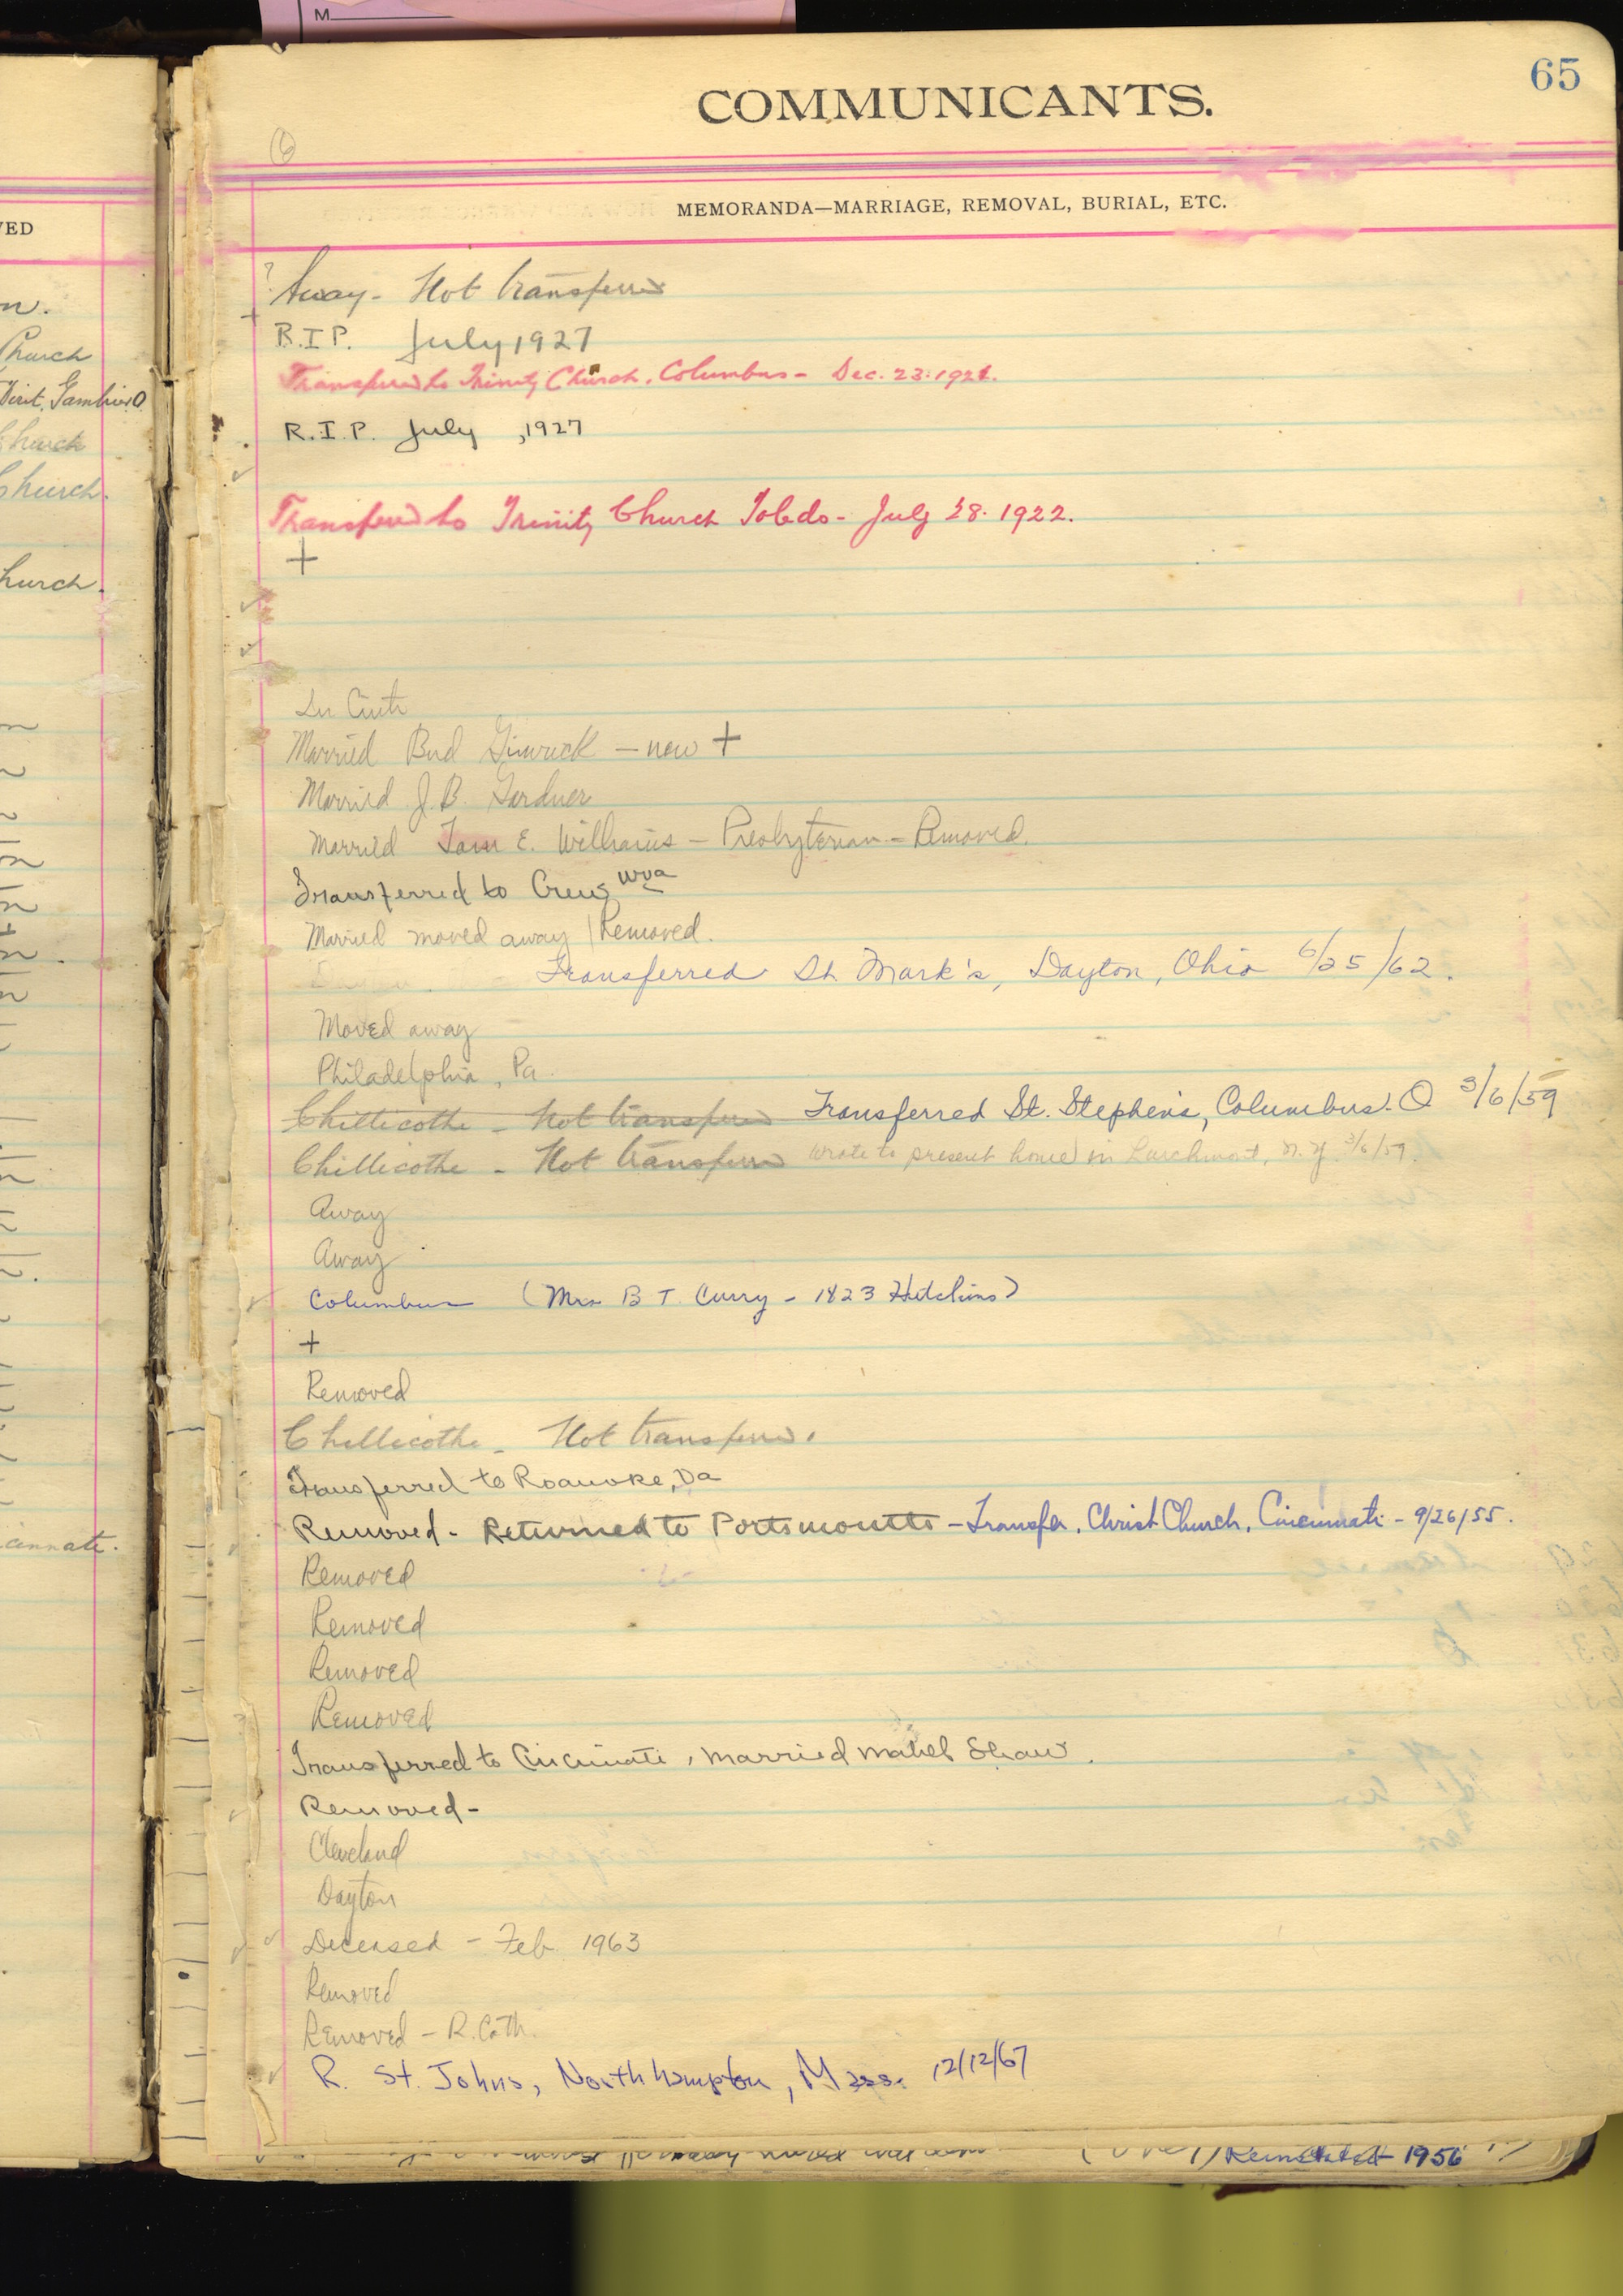 M
65
COMMUNICANTS.
6
MEMORANDA—MARRIAGE, REMOVAL, BURIAL, ETC.
VED
? Away - Not transferred
n.
R.I.P. July 1927
Church
Transferred to Trinity Church, Columbus - Dec. 23. 192
Gambier O
R.I.P. July , 1927
Church
Church.
Transferred to Trinity Church Toledo - July 28. 1922.
+
hurch.
Married Bud - now +
Married J.B. Gardner
Married Tom E. Williams - Presbyterian - Removed.
Transferred to Wva
Married moved away | Removed.
Transferred St. Mark's, Dayton, Ohio 6/25/62.
Moved away
Philadelphia, Pa.
Chillicothe - Not transferred Transferred St. Stephen's, Columbus. O 3/6/59
Chillicothe - Not transferred Wrote to present home in Larchmont, N.Y. 3/6/59.
Away
Away
Columbus (Mrs B T. Curry - 1823 Hutchins)
+
Removed
Chillicothe - Not transferred.
Transferred to Roanoke, Va
Removed - Returned to Portsmouth - Transfer. Christ Church, Cincinnati - 9/26/55.
cinnati.
Removed
Removed
Removed
Removed
Transferred to Cincinnati, married Mabel Shaw.
Removed -
Cleveland
Dayton
Deceased - Feb. 1963
Removed
Removed - R. Cath.
R. St. Johns, Northhampton, Mass. 12/12/67
Reinstated 1956